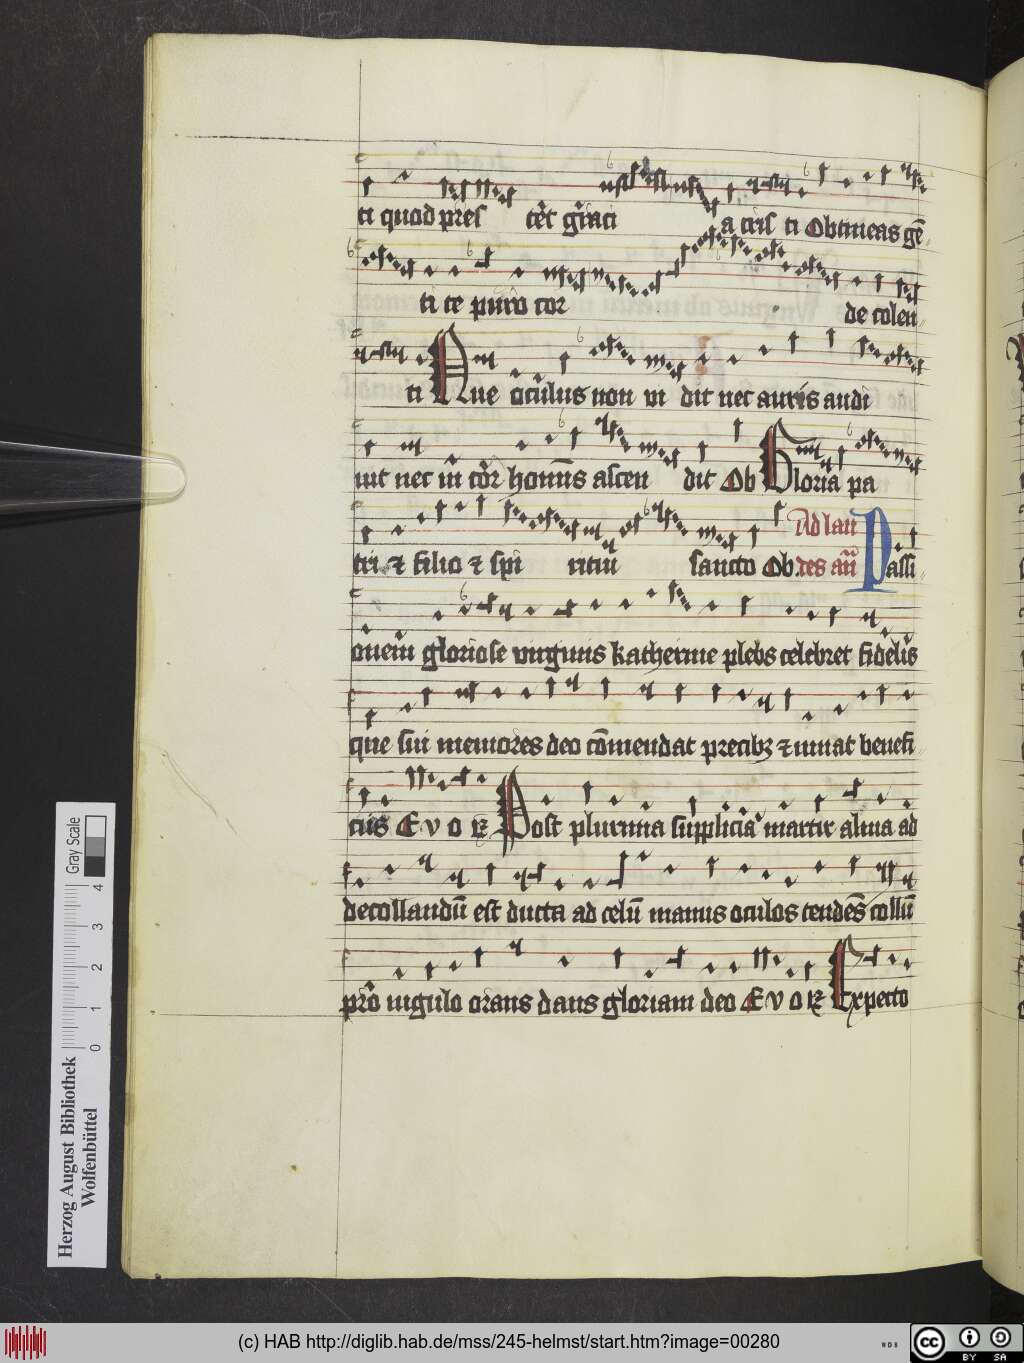 ti quod pres tēt gr̄aci a cris ti Obtineas gē
ti te puro cor de colen
ti Que oculus non vi dit nec auris audi
uit nec in cor hoīnis ascen dit Ob Gloria pa
tri ⁊ filio ⁊ spi ritui sancto Ob. Ad lau
des an̄ Passi
onem gloriose virginis katherine plebs celebret fidelis
que sui memores deo cōmendat precibꝫ ⁊ iuuat benefi
ciis E v o Post plurima supplicia martir alma ad
decollandū est ducta ad celū manus oculos tendēs collū
pro iugulo orans dans gloriam deo E v o Expecto
Gray Scale
4 3 2 1 0
Herzog August Bibliothek
Wolfenbüttel
(c) HAB http://diglib.hab.de/mss/245-helmst/start.htm?image=00280
WDB
cc BY SA